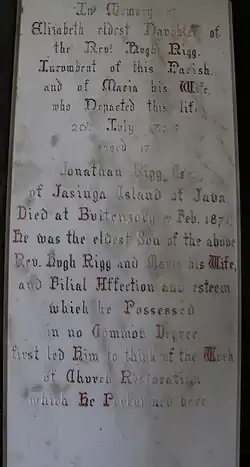 In Memory of
Elizabeth eldest Daughter of
the Revd. Hugh Rigg.
Incumbent of this Parish,
and of Maria his Wife,
who Departed this life
20th July
aged 17
Jonathan Rigg Esq.
of Jasinga Island of Java
Died at Buitenzorg Feb. 1871.
He was the eldest Son of the above
Rev. Hugh Rigg and Maria his Wife,
and Filial Affection and esteem
which he Possessed
in no Common Degree,
first led Him to think of the Work
of Church Restoration
which He Performed here